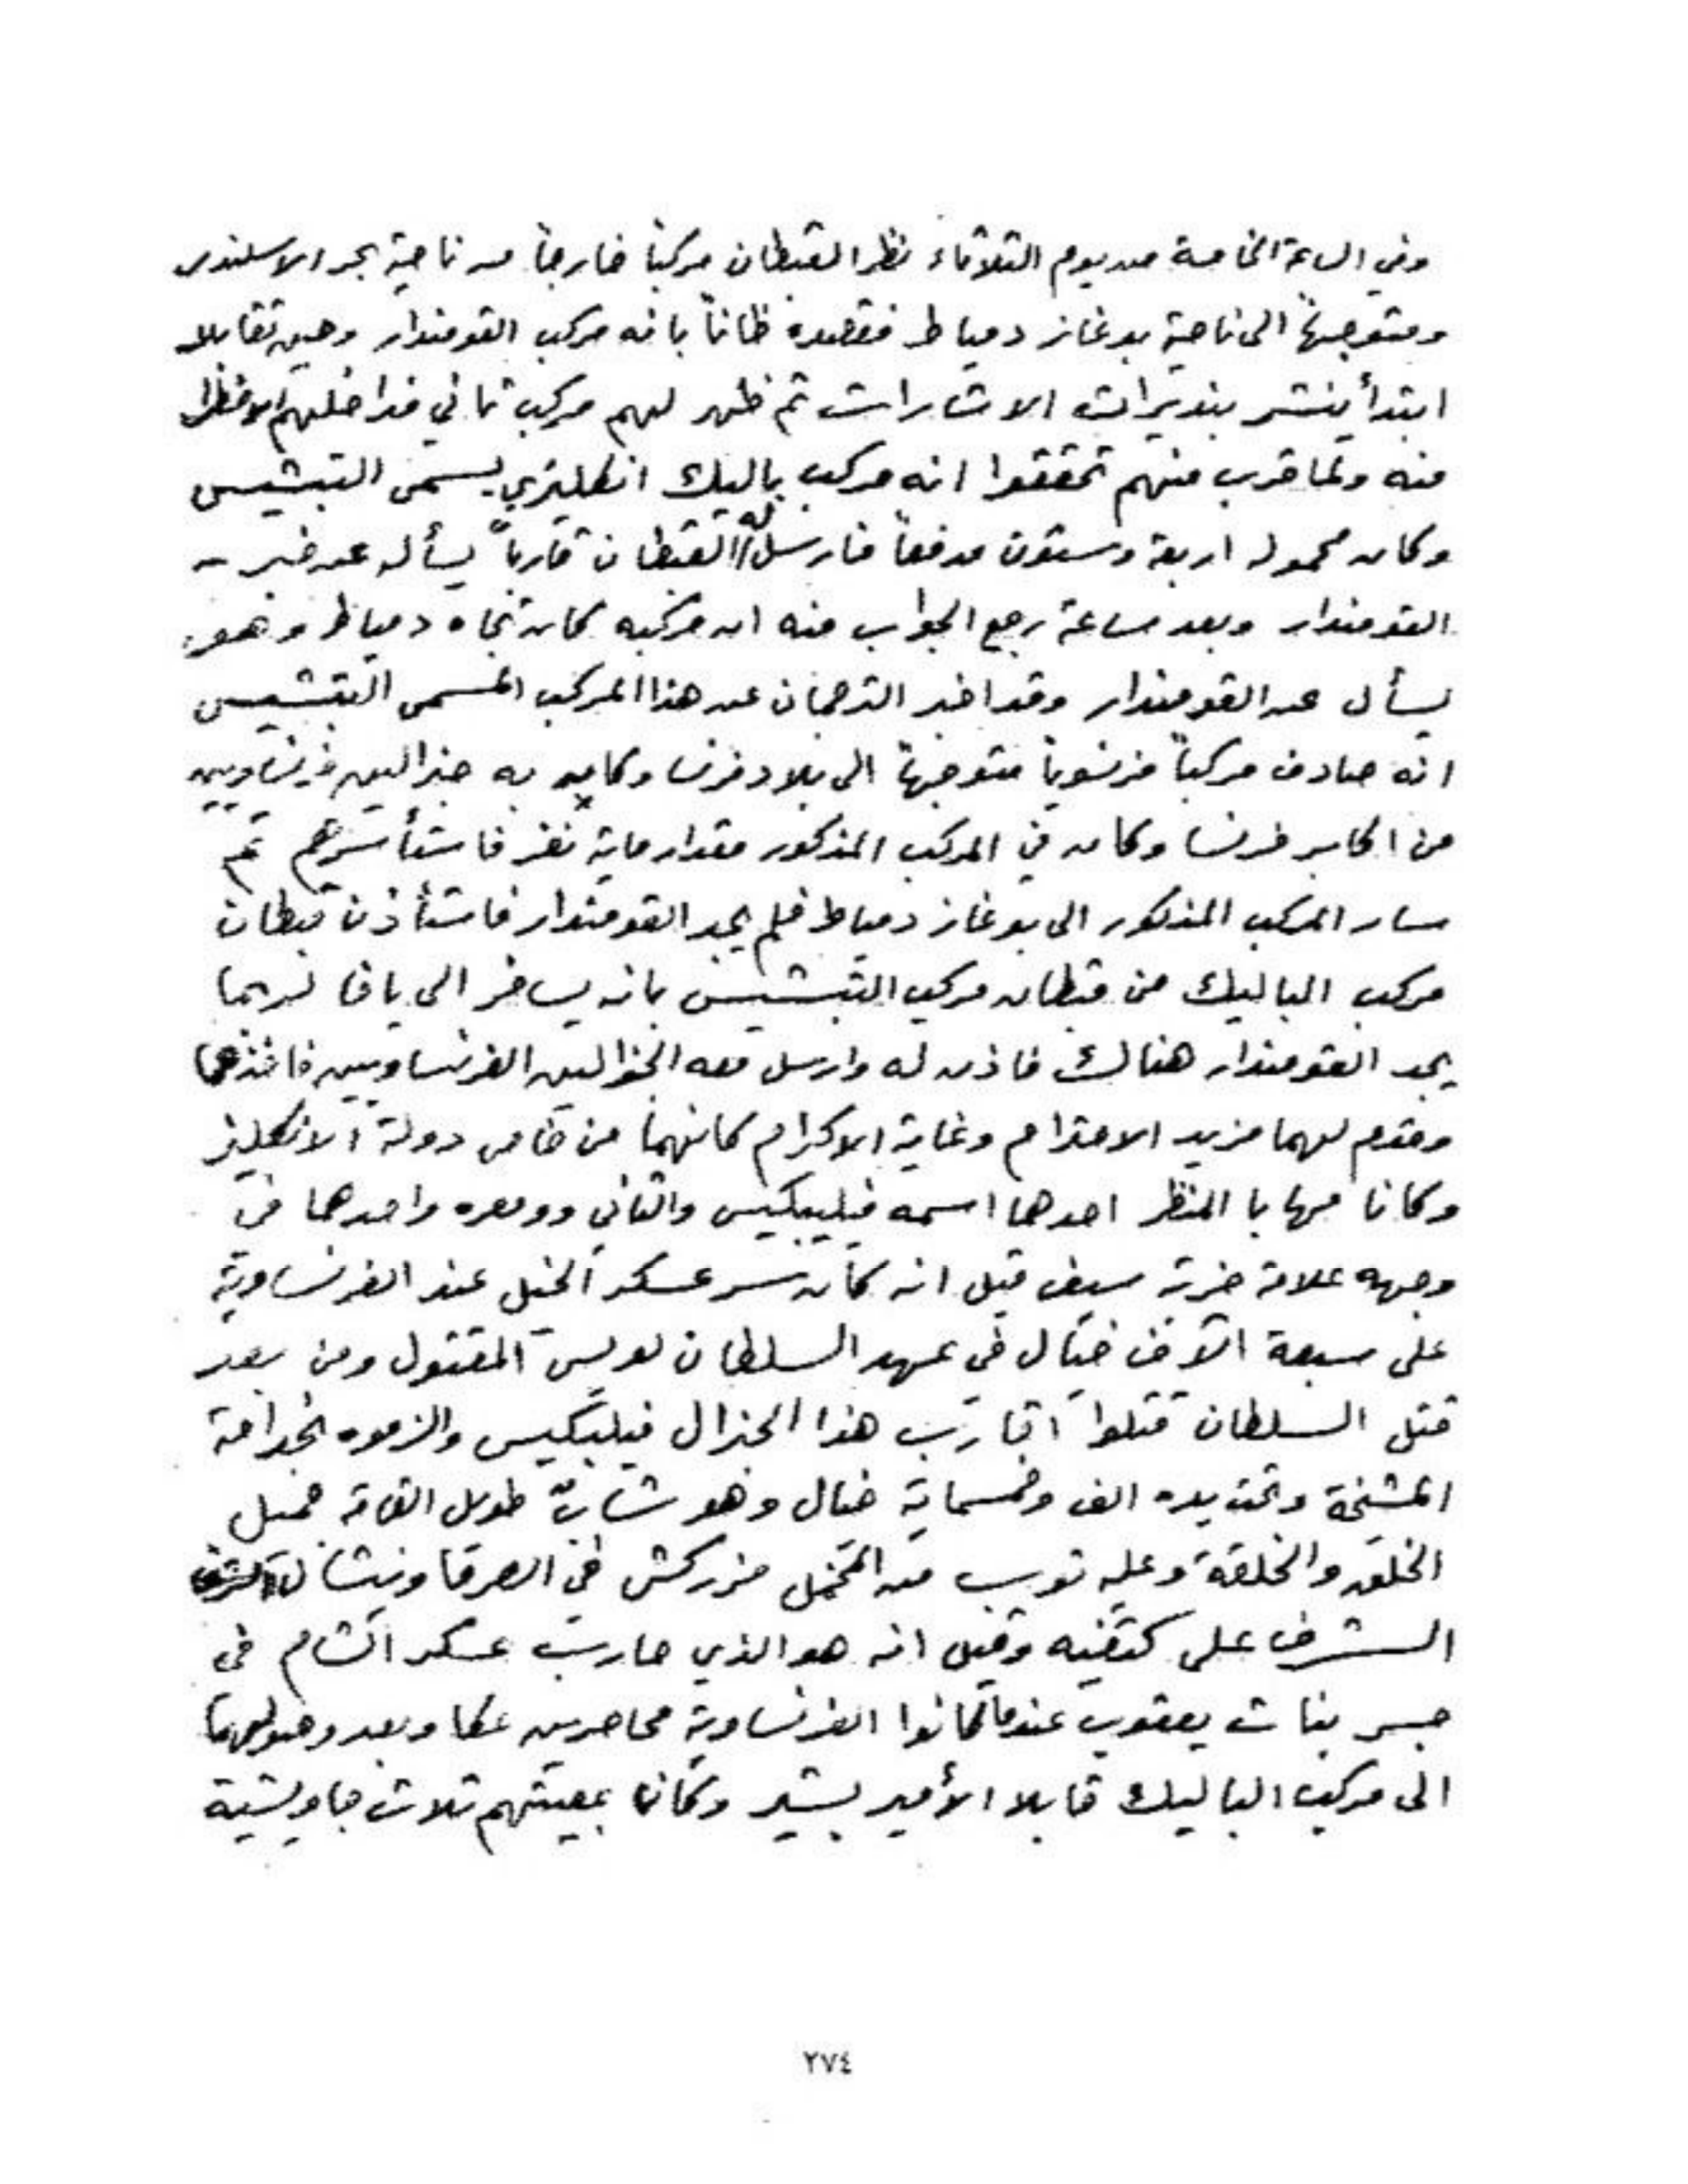 وفي الساعة الخامسة من يوم الثلاثاء نظر القبطان مركباً خارجاً من ناحية بحر الاسكندر
ومتوجهاً الى ناحية بوغاز دمياط فقصده ظاناً بانه مركب القومندار وحين تقابلا
ابتدأ ينشر بنديرات الاشارات ثم ظهر لهم مركب ثاني فداخلهم الافتظرار
منه ولما قرب منهم تحققوا انه مركب باليك انكليزي يسمى التبشيس
وكان محموله اربعة وستون مدفعاً فارسل له القبطان قارباً يسأله عن خبر
القومندار وبعد ساعة رجع الجواب منه ان مركبه كان تجاه دمياط وهو
يسأل عن القومندار وقد اخبر الترجمان عن هذا المركب المسمى التبشيس
انه صادف مركباً فرنسوياً متوجهاً الى بلاد فرنسا وكان به جنرالين فرنساويين
من اكابر فرنسا وكان في المركب المذكور مقدار ماية نفر فاستأسرهم ثم
سار المركب المذكور الى بوغاز دمياط فلم يجد القومندار فاستأذن قبطان
مركب الباليك من قبطان مركب التبشيس بانه يسافر الى يافا لربما
يجد القومندار هنالك فاذن له وارسل معه الجنرالين الفرنساويين فاخذهما
وقدم لهما مزيد الاحترام وغاية الاكرام كانهما من خاص دولة الانكليز
وكانا مهابا المنظر احدهما اسمه فيليبكيس والثاني دومره واحدهما في
وجهه علامة ضربة سيف قيل انه كان سر عسكر الخيل عند الفرنساوية
على سبعة آلاف خيّال في عهد السلطان لويس المقتول ومن بعد
قتل السلطان قتلوا اقارب هذا الجنرال فيلبكيس والزموه بخدامة
المشيخة وتحت يده الف وخمسماية خيال وهو شابّ طويل القامة جميل
الخلق والخلقة وعليه ثوب من المخمل مزركش في الصرما ونيشان
الشرف على كتفيه وقيل انه هو الذي حارب عسكر الشام في
جسر بنات يعقوب عندما كانوا الفرنساوية محاصرين عكا وبعد وصولهما
الى مركب الباليك قابلا الأمير بشير وكانا بمعيتهم ثلاث جاويشية
٢٧٤